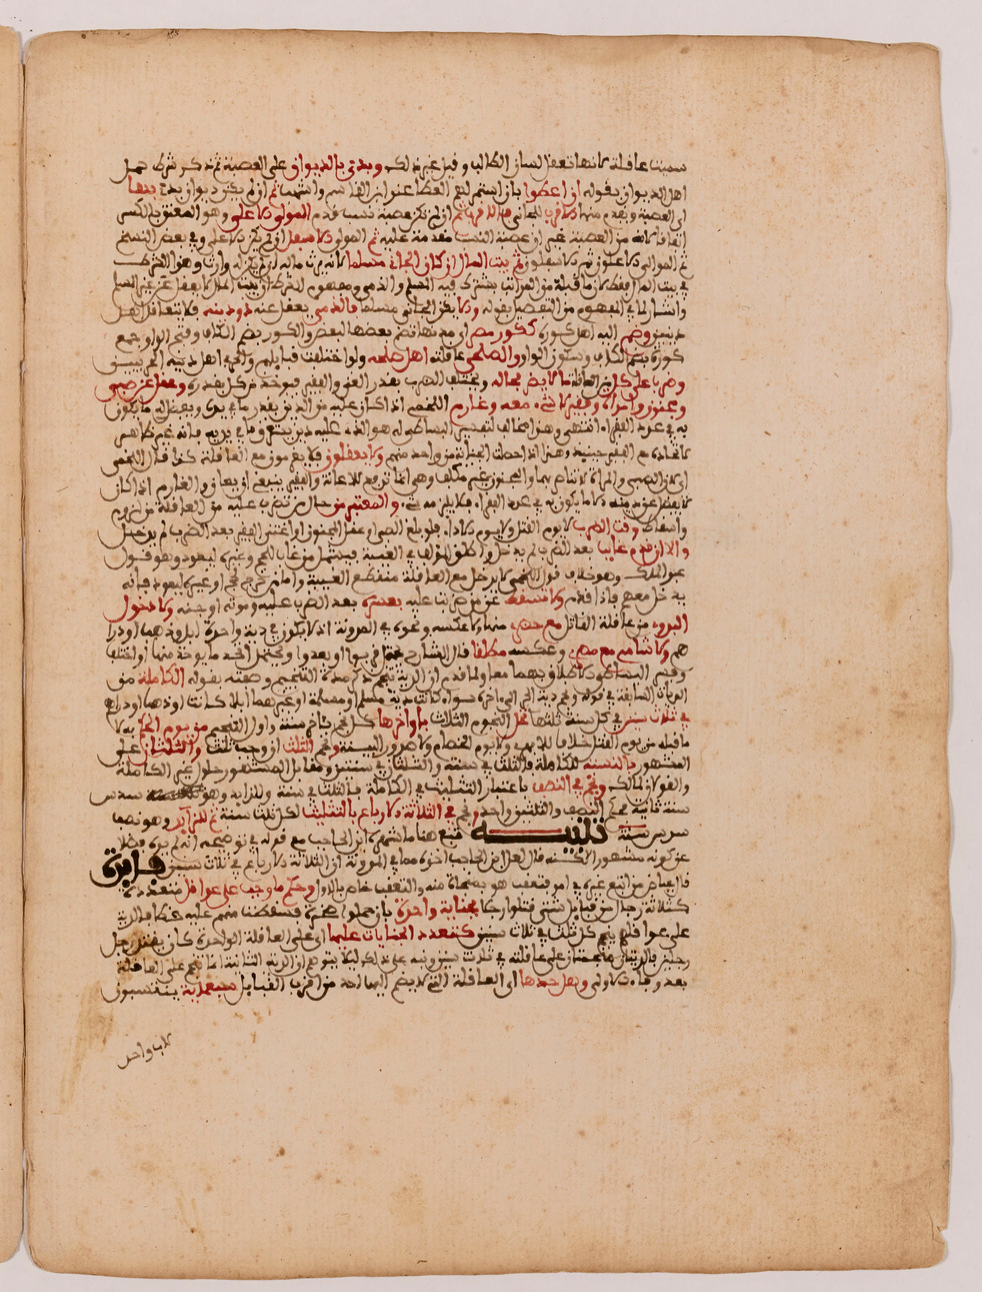 سميت عاقلة لانها تعقل لسان الطالب وقيل غير ذلك وبدئ بالديوان على العصبة ثم ذكر شرط حمل
اهل الديوان بقوله ان اعطوا بان استمر لهم العطا عند ابن القاسم واشهب ثم ان لم يكن ديوان بدئ بها
اى العصبة ويقدم منها الاقرب للجانى فالاقرب ثم ان لم تكن عصبة نسب قدم المولى الاعلى وهو المعتق بالكسر
اتفاقا لانه من العصبة غير ان عصبة النسب مقدمة عليه ثم المولى الاسفل ان لم يكن الاعلى وفى بعض النسخ
ثم الموالى الاعلون ثم الاسفلون ثم بيت المال ان كان الجانى مسلما لانه يرث ماله ان لم يكن له وارث وهذا الشرط
فى بيت المال فقط لان ما قبله من المراتب يشترك فيه المسلم والذمى ومفهوم الشرط ان بيت المال لا يعقل عن غير المسلم
واشار لما فى المفهوم من التفصيل بقوله والا يكن الجانى مسلما فالذمى يعقل عنه ذو دينه فلا يتعاقل اهل
دينين وضم اليه اهل كوره ككور مصر اى مدنها فضم بعضها لبعض والكور بضم الكاف وفتح الواو جمع
كورة بضم الكاف وسكون الواو والصلحى عاقلته اهل صلحه ولو اختلفت قبايلهم
وضرب على كل من العاقلة ما لا يضر بماله ويختلف الضرب بقدر الغنى والفقر فيوخذ من كل بقدره وعقل عن صبى
ومجنون وامراة وفقير لا شىء معه وغارم اللخمى اذا كان عليه من الدين بقدر ما فى يديه ويفضل له ما يكون
به فى عدد الفقرا انتهى وهذا مخالف لتفسير البساطى له هو الذى عليه دين
لاتحاده مع الفقير حينيذ وهذا اذا حصلت الجناية من واحد منهم ولا يعقلون فلا يغرمون مع العاقلة كما قال اللخمى
لان الصبى والمراة لا تناصر بهما والمجنون غير مكلف وهى انما ترفد للاعانة والفقير ينبغى ان يعان والغارم اذا كان
لا يفضل عن دينه الا ما يكون به فى عدد الفقرا فلا يلزمه شىء والمعتبر من حال من تضرب عليه من العاقلة من لزوم
واسقاط وقت الضرب لا يوم القتل ولا يوم الاداء فلو بلغ الصبى او عقل المجنون او اغتنى الفقير بعد الضرب لم يدخل
والا ان قدم غايب بعد الضرب لم يدخل واطلق المؤلف فى الغيبة فيشمل من غاب للحج وغيره ليعود وهو قول
عبد الملك وهو خلاف قول اللخمى لا يدخل مع العاقلة منقطع الغيبة واما من خرج لحج او غيره ليعود فانه
يدخل معهم فاذا قدم ولا تسقط عن من ضربت عليه بعسره بعد الضرب عليه وموته او جنه ولا دخول
لبدوى من عاقلة القاتل مع حضرى منها ولا عكسه ونحوه فى المدونة اذ لا يكون فى دية واحدة ابل وذهب او درا
هم ولا شامى مع مصرى وعكسه مطلقا قال الشارح
وفسر البساطى الاطلاق بهما معا ولما قدم ان الدية تنجم ذكر مدة التنجيم وصفته بقوله الكاملة من
الديات السابقة فى قوله ونجمت دية الحر الى ءاخره سواء كانت دية مسلم او مسلمة او غيرهما ابلا كانت او ذهبا او دراهم
فى ثلاث سنين فى كل سنة ثلثها تحل النجوم الثلاث باواخرها كل نجم باخر سنة واول التنجيم من يوم الحكم به لا
ما قبله من يوم القتل خلافا للابهرى ولا يوم الخصام ولا صدور البينة ونجم الثلث ان وجب ثلث والثلثان على
المشهور بالنسبة للكاملة فالثلث فى سنة والثلثان فى سنتين ومقابل المشهور حلول غير الكاملة
والقولان لمالك ونجم فى النصف باعتبار التثليث فى الكاملة فالثلث فى سنة وللزايد وهو سدس
سنة فانية كحكم النصف والثلثين واحد ونجم فى الثلاثة الارباع بالتثليث لكل ثلث سنة ثم للزايد وهو نصف
سدس سنة تنبيه تبع هنا ما شهره ابن الحاجب مع قوله فى توضيحه انه لم يره فضلا
عن كونه مشهورا لاكنه قال لعل ابن الحاجب اخذه مما فى المدونة ان الثلاثة الارباع فى ثلاث سنين فايدة
قال عياض من اتبع غيره فى امر فتعقب هو بمنجاة منه والتعقب خاص بالاول وحكم ما وجب على عواقل متعددة
كثلاثة رجال من قبايل شتى قتلوا رجلا بجناية واحدة بان حملوا صخرة فسقطت منهم عليه حكما فالدية
على عواقلهم ينجم كل ثلث فى ثلاث سنين كتعدد الجنايات عليها اى على العاقلة الواحدة كان يقتل رجل
رجلين فالديتان منجمتان على عاقلته فى ثلاث سنين ونبه على ذلك ليلا يتوهم ان الدية الثانية انما تنجم على العاقلة
بعد وفاء الاولى وهل حدها اى العاقلة التى لا يضم اليها احد من اقرب القبايل سبعماية ينتسبون
لاب واحد